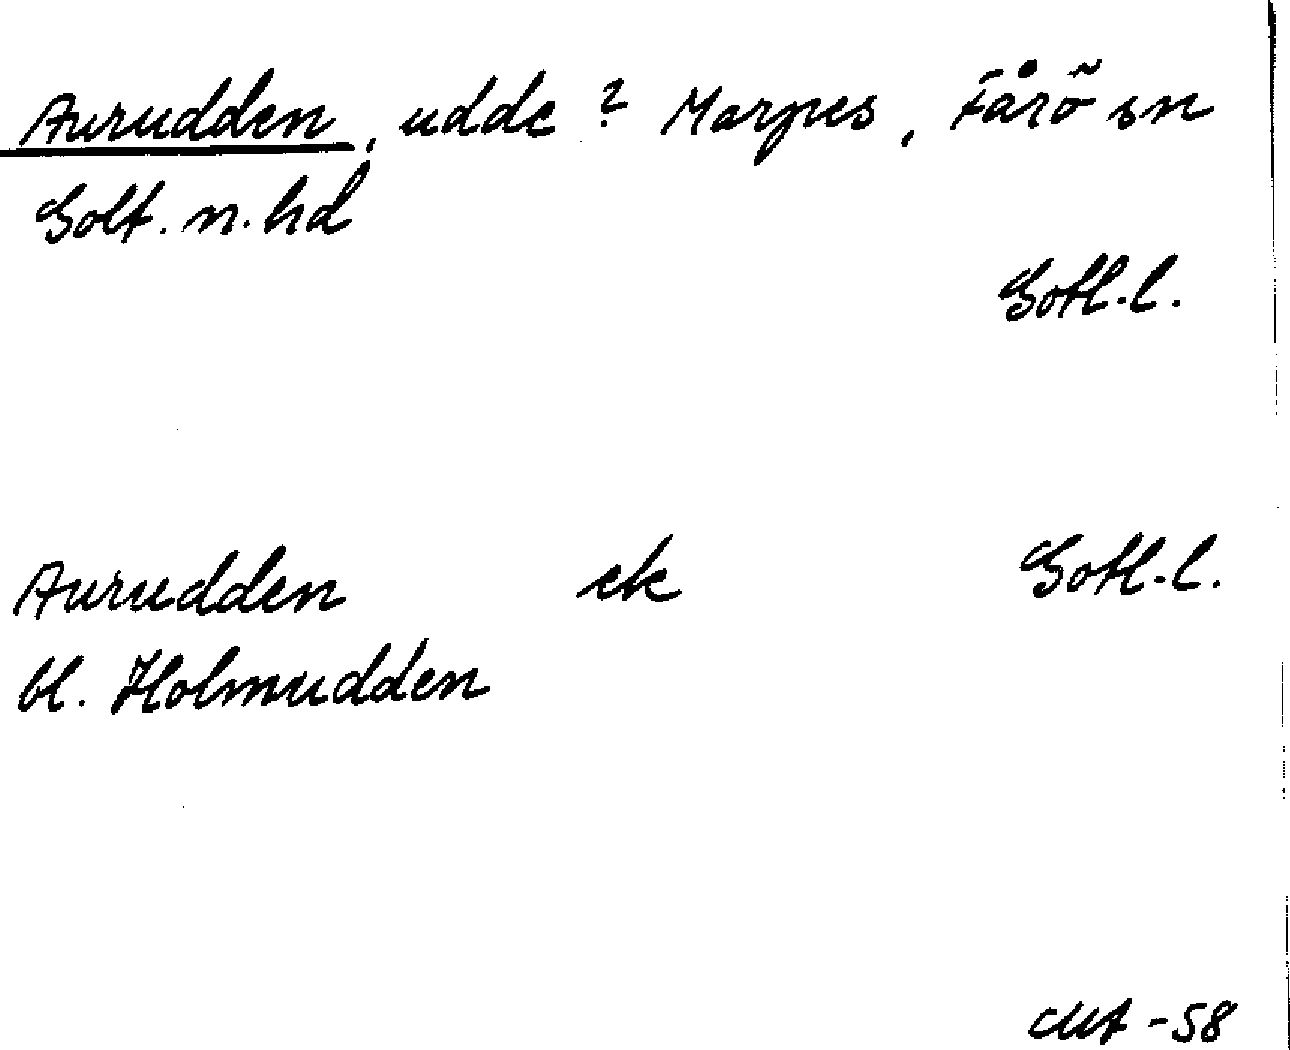 Aurudden, udde? Marpes, Fårö sn
Gotl. n. hd
Gotl. l.
Aurudden ek Gotl. l.
bl. Holmudden
-58